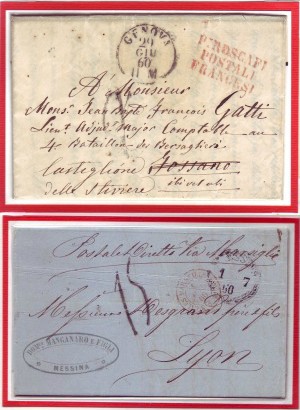 GENOVA
29
GIU
60
11 M
PIROSCAFI
POSTALI
FRANCESI
A Monsieur
Mons. Jean Bapt François Gatti
Lieut Adjud Major Comptable au
4e Bataillon des Bersagliers
Castiglione Fossano
delle Stiviere
Postale Diretto Via Marsiglia
1
7
60
15
Messieurs Desgrand père & fils
Lyon
MANGANARO & FIGLI
MESSINA